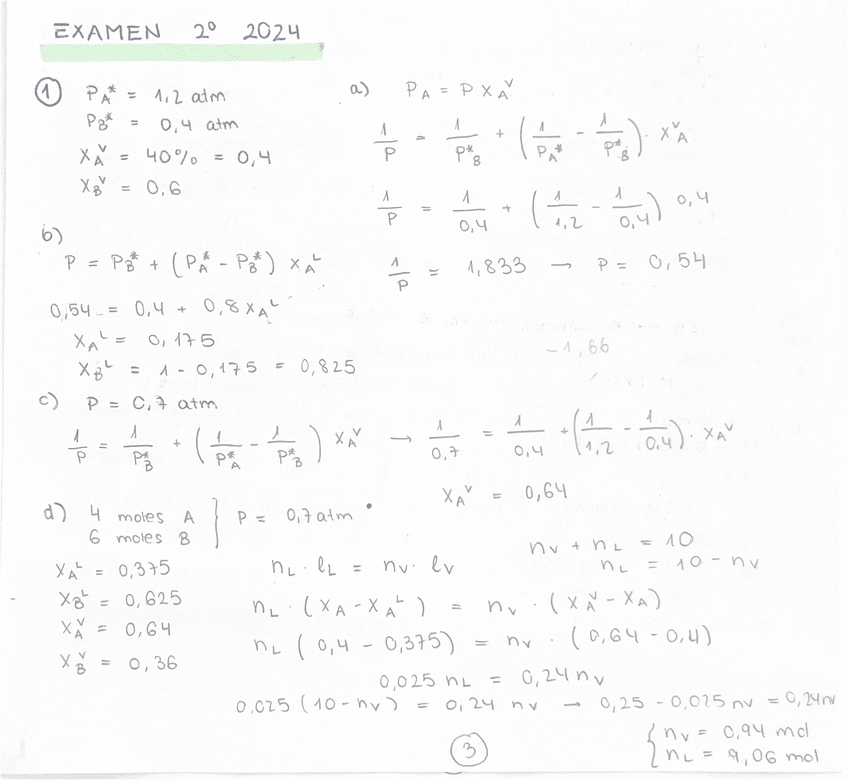 EXAMEN 2º 2024
① P_A* = 1,2 atm
P_B* = 0,4 atm
X_A^V = 40% = 0,4
X_B^V = 0,6
a) P_A = P X_A^V
1/P = 1/P*_B + (1/P_A* - 1/P*_B) · X_A^V
1/P = 1/0,4 + (1/1,2 - 1/0,4) 0,4
1/P = 1,833 → P = 0,54
b)
P = P_B* + (P_A* - P_B*) X_A^L
0,54 = 0,4 + 0,8 X_A^L
X_A^L = 0,175
X_B^L = 1 - 0,175 = 0,825
-1,66
c) P = 0,7 atm
1/P = 1/P*_B + (1/P*_A - 1/P*_B) X_A^V → 1/0,7 = 1/0,4 + (1/1,2 - 1/0,4) · X_A^V
X_A^V = 0,64
d) 4 moles A
6 moles B } P = 0,7 atm
X_A^L = 0,375
X_B^L = 0,625
X_A^V = 0,64
X_B^V = 0,36
n_V + n_L = 10
n_L = 10 - n_V
n_L · l_L = n_V · l_V
n_L · (X_A - X_A^L) = n_V · (X_A^V - X_A)
n_L (0,4 - 0,375) = n_V · (0,64 - 0,4)
0,025 n_L = 0,24 n_V
0,025 (10 - n_V) = 0,24 n_V → 0,25 - 0,025 n_V = 0,24 n_V
{ n_V = 0,94 mol
n_L = 9,06 mol
③